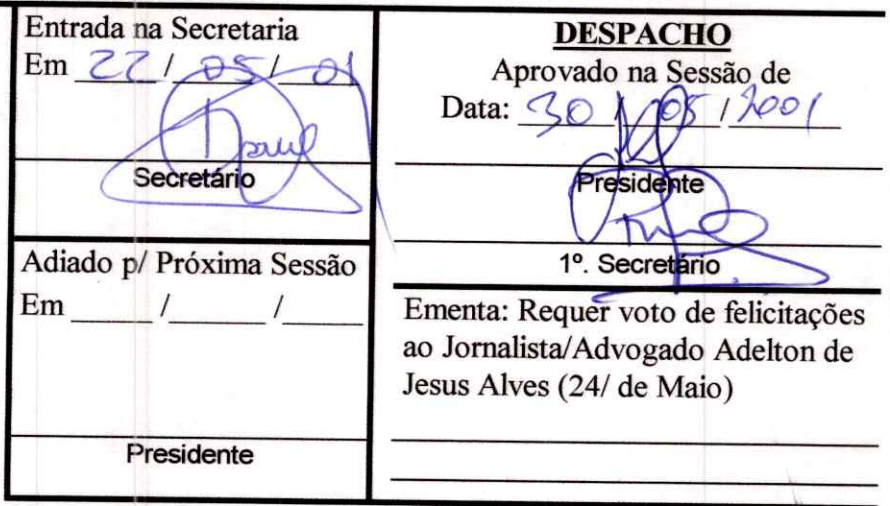 Entrada na Secretaria
Em 22 / 05 / 01
Secretário
Adiado p/ Próxima Sessão
Em ____ / ____ / ____
Presidente
DESPACHO
Aprovado na Sessão de
Data: 30 / 05 / 2001
Presidente
1º. Secretário
Ementa: Requer voto de felicitações
ao Jornalista/Advogado Adelton de
Jesus Alves (24/ de Maio)